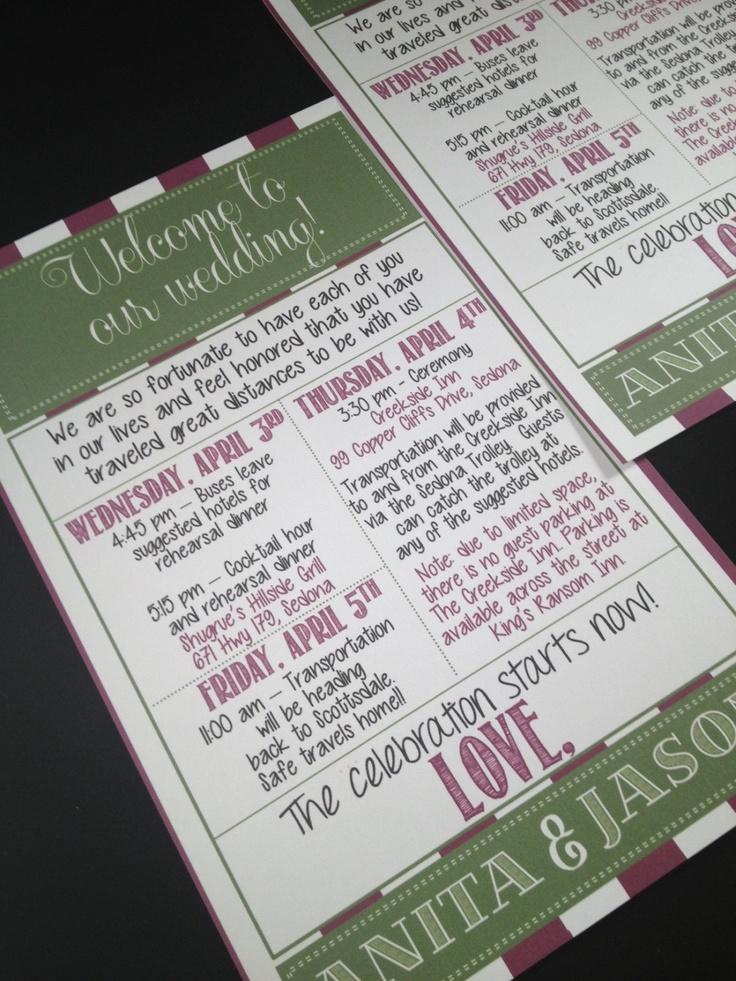 Welcome to
our wedding!
We are so fortunate to have each of you
in our lives and feel honored that you have
traveled great distances to be with us!
WEDNESDAY, APRIL 3RD
4:45 pm – Buses leave
suggested hotels for
rehearsal dinner
5:15 pm – Cocktail hour
and rehearsal dinner
Shugrue's Hillside Grill
671 Hwy 179, Sedona
FRIDAY, APRIL 5TH
11:00 am – Transportation
will be heading
back to Scottsdale.
Safe travels home!!
THURSDAY, APRIL 4TH
3:30 pm - Ceremony
Creekside Inn
99 Copper Cliffs Drive, Sedona
Transportation will be provided
to and from the Creekside Inn
via the Sedona Trolley. Guests
can catch the trolley at
any of the suggested hotels.
Note: due to limited space,
there is no guest parking at
The Creekside Inn. Parking is
available across the street at
King's Ransom Inn.
The celebration starts now!
LOVE,
ANITA & JASON
We are so
in our lives and
traveled great distan
WEDNESDAY, APRIL 3RD
4:45 pm – Buses leave
suggested hotels for
rehearsal dinner
5:15 pm – Cocktail hour
and rehearsal dinner
Shugrue's Hillside Grill
671 Hwy 179, Sedona
FRIDAY, APRIL 5TH
11:00 am – Transportation
will be heading
back to Scottsdale.
Safe travels home!!
THURS
3:30 pm
Creeksid
99 Copper Cliffs D
Transportation will be pro
to and from the Creek
via the Sedona Trolley
can catch the tro
any of the sugg
Note: due to
there is no
The Creek
available
The celebration
LO
ANIT